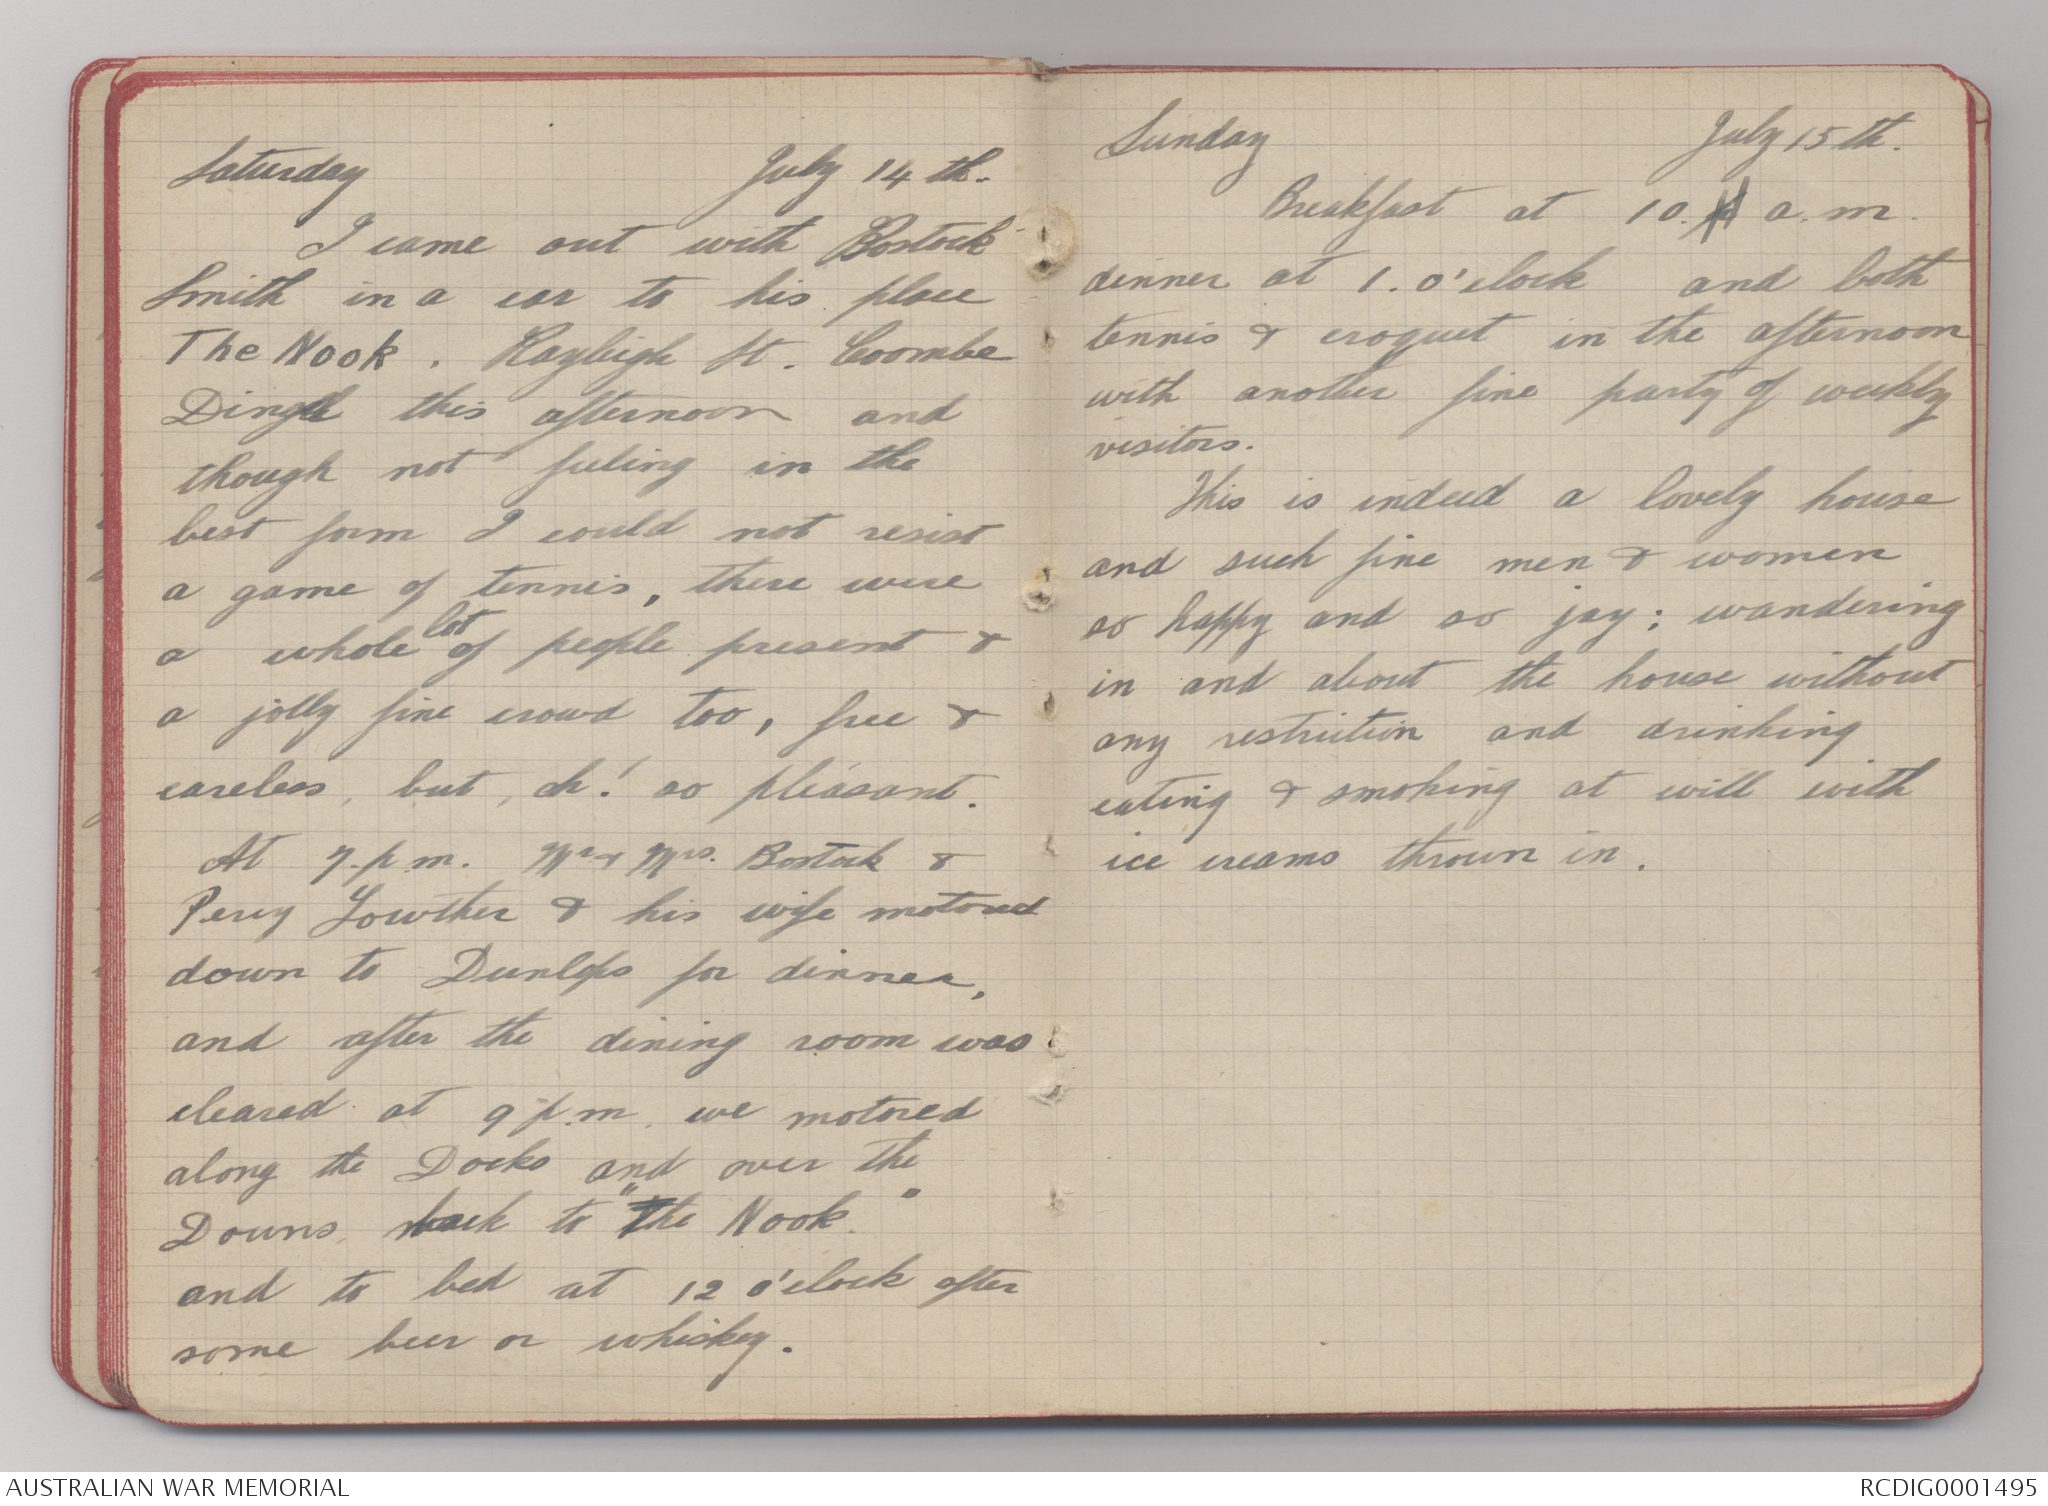 Saturday July 14th.
I came out with Bostock
Smith in a car to his place
The Nook. Rayleigh St. Coombe
Dingle this afternoon and
though not feeling in the
best form I could not resist
a game of tennis, there were
a whole lot of people present &
a jolly fine crowd too, free &
careless, but, oh! so pleasant.
At 7.p.m. Mr & Mrs. Bostock &
Percy Lowther & his wife motored
down to Dunlops for dinner,
and after the dining room was
cleared at 9 p.m. we motored
along the Docks and over the
Downs, back to "The Nook."
and to bed at 12 o'clock after
some beer or whiskey.
Sunday July 15th.
Breakfast at 10. a.m.
dinner at 1. o'clock and both
tennis & croquet in the afternoon
with another fine party of weekly
visitors.
This is indeed a lovely house
and such fine men & women
so happy and so jay; wandering
in and about the house without
any restriction and drinking
eating & smoking at will with
ice creams thrown in.
AUSTRALIAN WAR MEMORIAL
RCDIG0001495